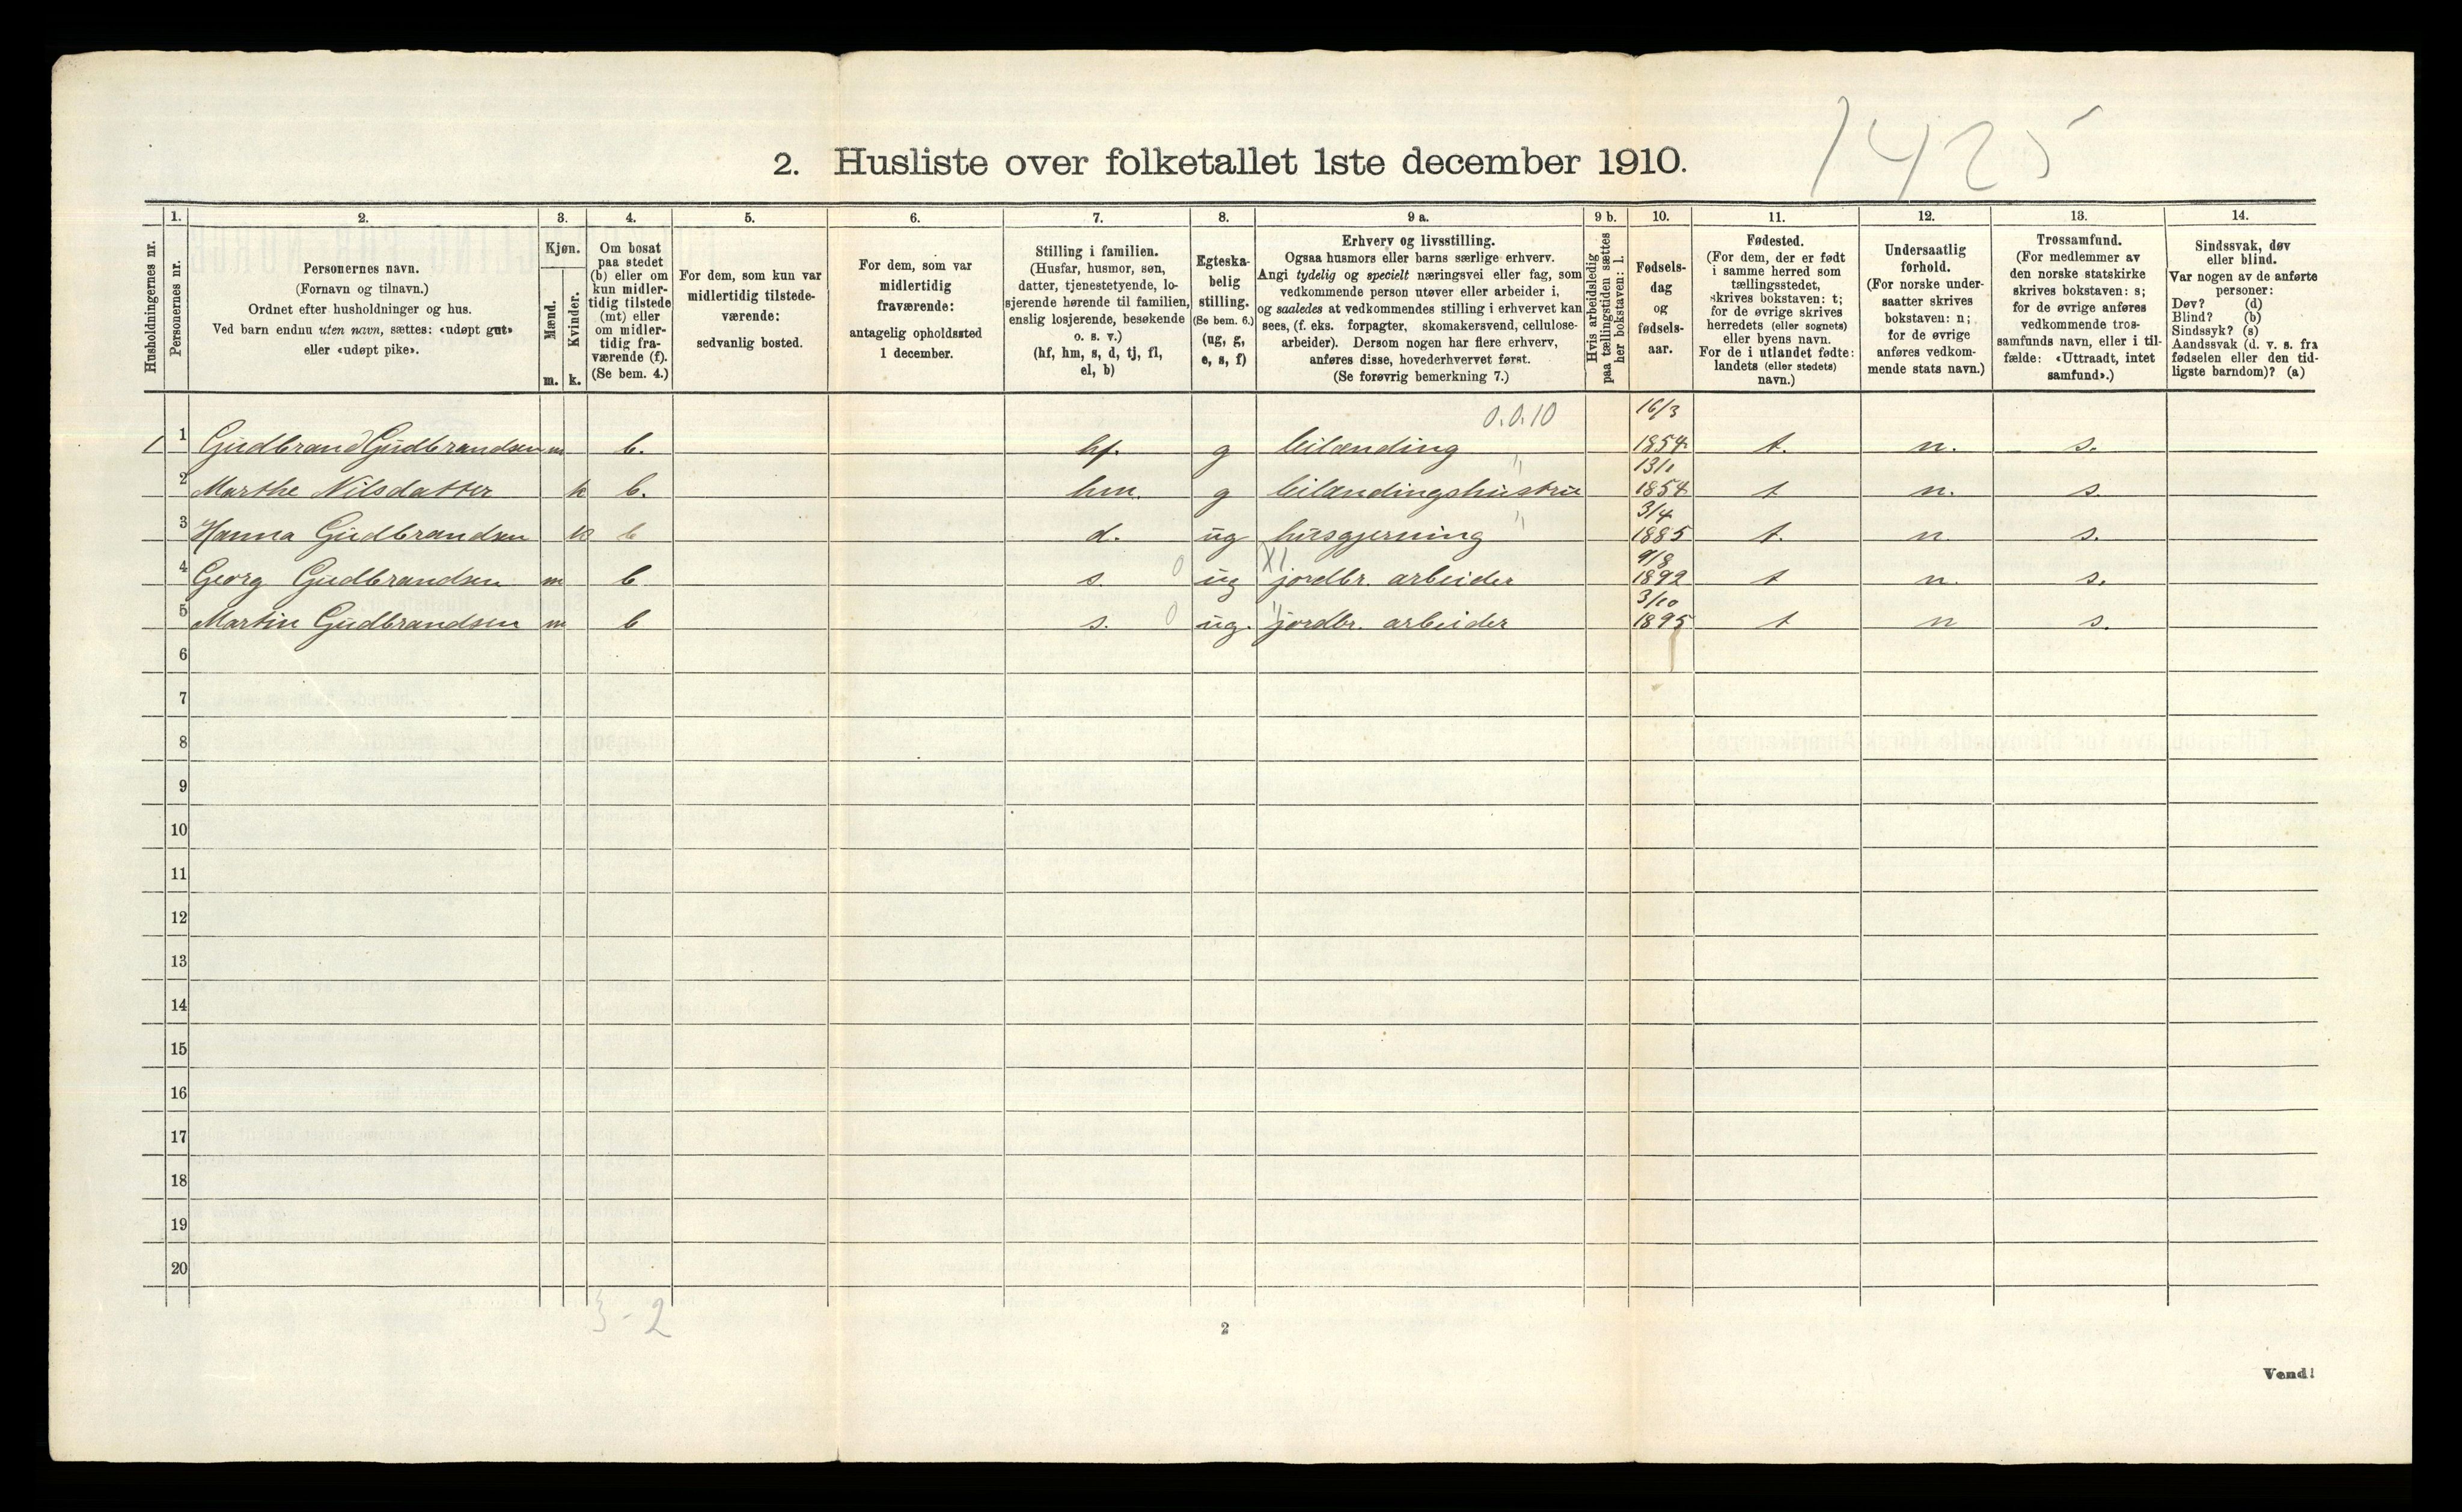 1425
2. Husliste over folketallet 1ste december 1910.
Husholdningernes nr.
1.
Personernes nr.
2.
Personernes navn.
(Fornavn og tilnavn.)
Ordnet efter husholdninger og hus.
Ved barn endnu uten navn, sættes: «udøpt gut»
eller «udøpt pike».
3.
Kjøn.
Mænd.
Kvinder.
m. k.
4.
Om bosat
paa stedet
(b) eller om
kun midler-
tidig tilstede
(mt) eller
om midler-
tidig fra-
værende (f).
(Se bem. 4.)
5.
For dem, som kun var
midlertidig tilstede-
værende:
sedvanlig bosted.
6.
For dem, som var
midlertidig
fraværende:
antagelig opholdssted
1 december.
7.
Stilling i familien.
(Husfar, husmor, søn,
datter, tjenestetyende, lo-
sjerende hørende til familien,
enslig losjerende, besøkende
o. s. v.)
(hf, hm, s, d, tj, fl,
el, b)
8.
Egteska-
belig
stilling.
(Se bem. 6.)
(ug, g,
e, s, f)
9 a.
Erhverv og livsstilling.
Ogsaa husmors eller barns særlige erhverv.
Angi tydelig og specielt næringsvei eller fag, som
vedkommende person utøver eller arbeider i,
og saaledes at vedkommendes stilling i erhvervet kan
sees, (f. eks. forpagter, skomakersvend, cellulose-
arbeider). Dersom nogen har flere erhverv,
anføres disse, hovederhvervet først.
(Se forøvrig bemerkning 7.)
9 b.
Hvis arbeidsledig
paa tællingstiden sættes
her bokstaven: l.
10.
Fødsels-
dag
og
fødsels-
aar.
11.
Fødested.
(For dem, der er født
i samme herred som
tællingsstedet,
skrives bokstaven: t;
for de øvrige skrives
herredets (eller sognets)
eller byens navn.
For de i utlandet fødte:
landets (eller stedets)
navn.)
12.
Undersaatlig
forhold.
(For norske under-
saatter skrives
bokstaven: n;
for de øvrige
anføres vedkom-
mende stats navn.)
13.
Trossamfund.
(For medlemmer av
den norske statskirke
skrives bokstaven: s;
for de øvrige anføres
vedkommende tros-
samfunds navn, eller i til-
fælde: «Uttraadt, intet
samfund».)
14.
Sindssvak, døv
eller blind.
Var nogen av de anførte
personer:
Døv? (d)
Blind? (b)
Sindssyk? (s)
Aandssvak (d. v. s. fra
fødselen eller den tid-
ligste barndom)? (a)
0.0.10 16/3
1 1 Gudbrand Gudbrandsen m b. hf. g leilænding 1854 t. n. s.
13/1
2 Marthe Nilsdatter k b. hm. g leilændingshustru " 1854 t n. s.
3/4
3 Hanna Gudbrandsen k b d. ug husgjerning " 1885 t. n. s.
9/8
4 Georg Gudbrandsen m b s. 0 ug XI jordbr. arbeider 1892 t n. s.
3/10
5 Martin Gudbrandsen m b s. 0 ug. " jordbr. arbeider 1895 t n s.
6
7
8
9
10
11
12
13
14
15
16
17
18
19
20
3 - 2
2
Vend!